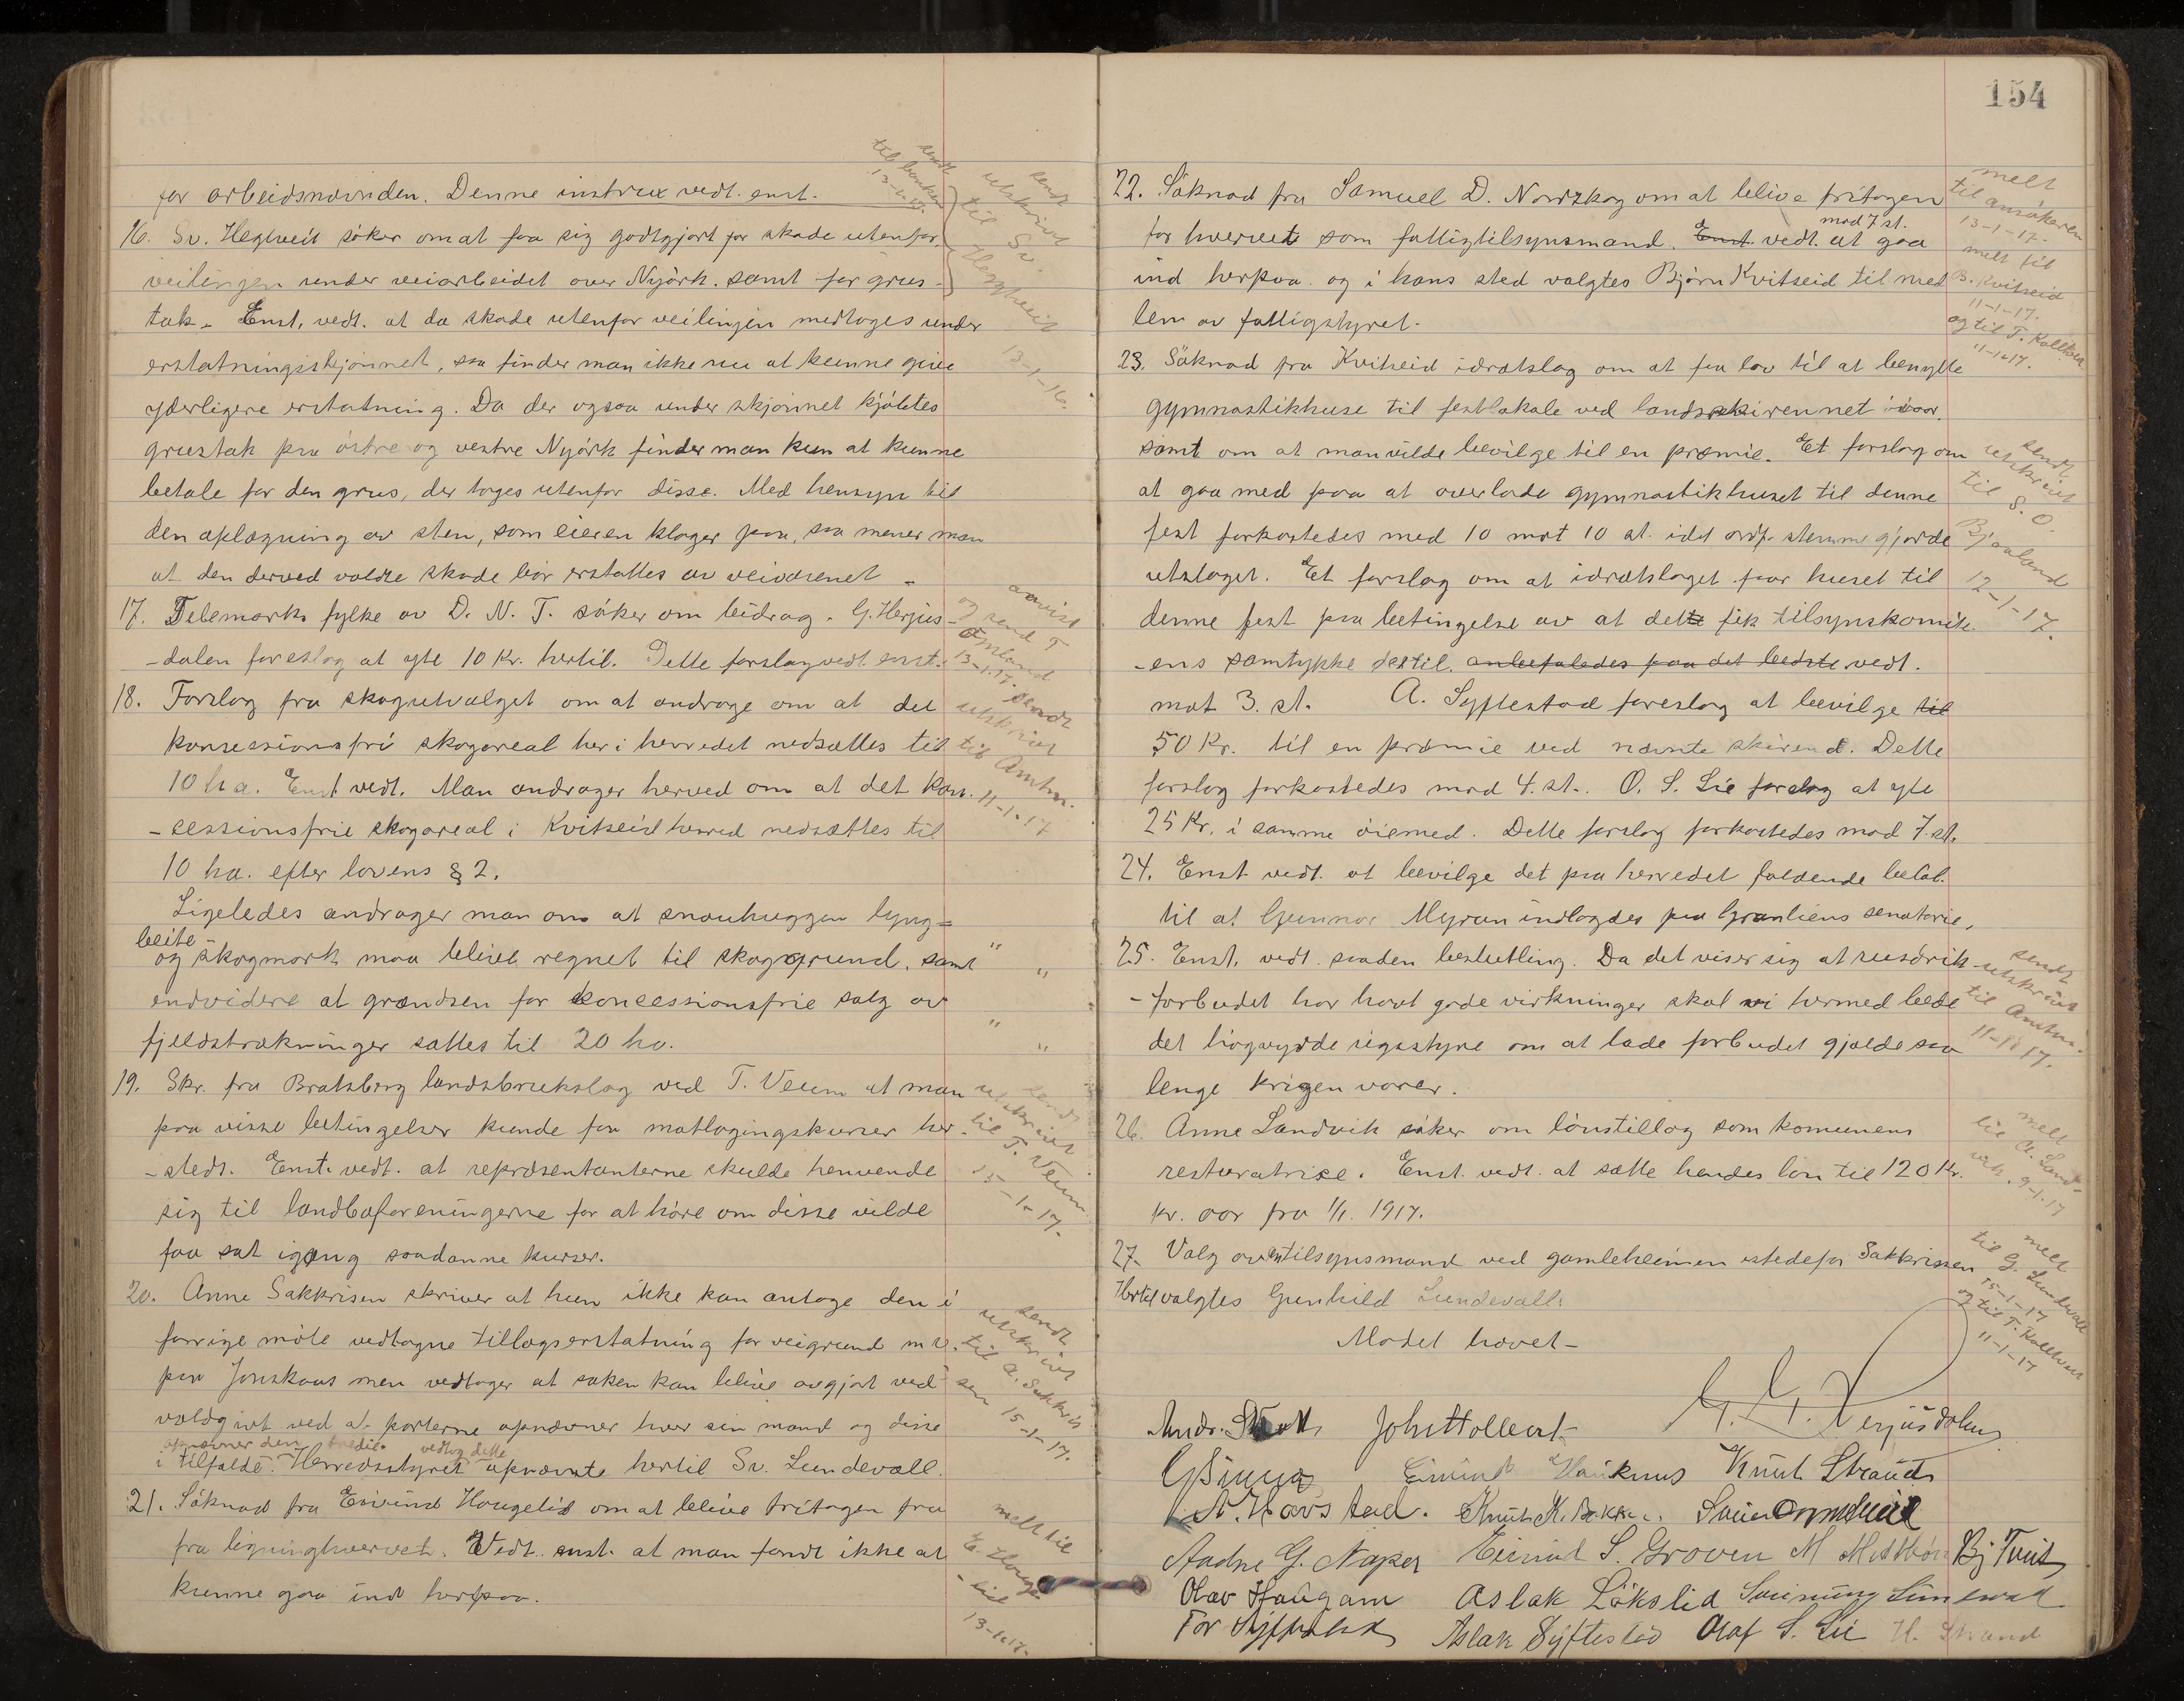 for arbeidsnævnden. Denne instrux vedt. enst.
16. Sv. Hegtveit søker om at faa sig godtgjort for skade utenfor
veilinjen under veiarbeidet over Nyørk. samt for grus-
tak. Enst. vedt. at da skade utenfor veilinjen medtages under
erstatningsskjønnet, saa finder man ikke nu at kunne give
yderligere erstatning. Da der ogsaa under skjønnet kjøbtes
grustak fra østre og vestre Nyørk finder man kun at kunne
betale for den grus, der tages utenfor disse. Med hensyn til
den oplægning av sten, som eieren klager paa, saa mener man
at den derved voldte skade bør erstattes av veivæsenet.
17. Telemarks fylke av D. N. T. søker om bidrag. G. Herjus-
-dalen foreslog at yte 10 Kr. hertil. Dette forslag vedt. enst.
18. Forslag fra skogutvalget om at andrage om at det
konsessionsfri skogareal her i herredet nedsættes til
10 ha. Enst vedt. Man andrager herved om at det kon-
-sessionsfrie skogareal i Kvitseid herred nedsættes til
10 ha. efter lovens § 2.
Ligeledes andrager man om at snauhuggen lyng=
beite
og skogmark maa blive regnet til skoggrund, samt " "
endvidere at grændsen for koncessionsfrie salg av
fjeldstrækninger sættes til 20 ha. " "
19. Skr. fra Bratsberg landsbrukslag ved T. Veum at man
paa visse betingelser kunde faa matlagingskurser her-
-steds. Enst. vedt. at repræsentanterne skulde henvende
sig til landboforeningerne for at høre om disse vilde
faa sat igang saadanne kurser.
20. Anne Sakkrisen skriver at hun ikke kan antage den i
forrige møte vedtagne tillægserstatning for veigrund m.v.
paa Jonskaas men vedtager at saken kan blive avgjort ved
voldgivt ved at parterne opnævner hver sin mand og disse
opnævner den tredie vedtog dette
i tilfælde. Herredsstyret opnævnte hertil Sv. Lundevall.
21. Søknad fra Eivind Haugelid om at blive fritagen fra
fra ligninghvervet. Vedt. enst. at man fandt ikke at
kunne gaa ind herpaa.
sendt
til banken
sendt
utskrivt
til Sv.
Hegtveit
13-1-16.
anvist
og sendt T
13-1-17.
sendt
utskrivt
til Amtm.
11-1-17
sendt
utskrivt
til T. Veum
15-1-17.
sendt
utskrivt
til A. Sakkris
sen 15-1-17.
melt til
E. Hauge
-lid
13-1-17.
154
22. Søknad fra Samuel D. Nordskog om at blive fritagen
mod 7 st.
for hvervet som fattigtilsynsmand. Enst. vedt. at gaa
ind herpaa. og i hans sted valgtes Bjørn Kvitseid til med
lem av fattigstyret.
23. Søknad fra Kviteseid idrætslag om at faa lov til at benytte
gymnastikhuse til festlokale ved landsskirennet iaar.
samt om at man vilde bevilge til en præmie. Et forslag om
at gaa med paa at overlade gymnastikhuset til denne
fest forkastedes med 10 mot 10 st. idet ordf. stemme gjorde
utslaget. Et forslag om at idrætslaget faar huset til
denne fest paa betingelse av at dette fik tilsynskomite-
-ens samtykke dertil. anbefaledes paa det bedste vedt.
mot 3. st. A. Syftestad foreslog at bevilge til
50 Kr. til en præmie ved nævnte skirend. Dette
forslag forkastedes mod 4. st. O. S. Lie forslog at yte
25 Kr. i samme øiemed. Dette forslag forkastedes mod 7. st.
24. Enst vedt. at bevilge det paa herredet faldende beløb.
til at Gunnar Myran indlægdes paa Granliens senatorie.
25. Enst. vedt. saaden beslutting. Da det viser sig at rusdrik-
-forbudet har havt gode virkninger skal vi hermed bede
det høgvyrde rigsstyre om at lade forbudet gjælde saa
lenge krigen varer.
26. Anne Landvik søker om lønstillæg som komunens
resturatrise. Enst. vedt. at sætte hendes løn til 120 Kr.
pr. aar fra 1/1. 1917.
27. Valg av en tilsynsmand ved gamleheimen istedefor Sakkrissen
Hertil valgtes Gunhild Lundevall.
Mødet hævet-
melt
til ansøkeren
13-1-17.
melt til
B. Kvitseid
11-1-17.
og til T. Kolltveit
11-1-17.
sendt
utskrivt
til S. O.
Bjaaland
12-1-17.
sendt
utskrivt
til Amtm.
11-1-17.
melt
til A. Land-
vik. 9-1-17
melt
til G. Lundevall
15-1-17
og til T. Kolltveit
11-1-17
G. G. Herjusdalen
Knut Strand
A. Havstad. Knut K. Bakken.
Aadne G. Naper Eivind S. Groven Bj Tveit
Olav Haugann Aslak Løkslid Sveinung Lundevall
Tor Syftestad Aslak Syftestad Olaf S. Lie H. Strand